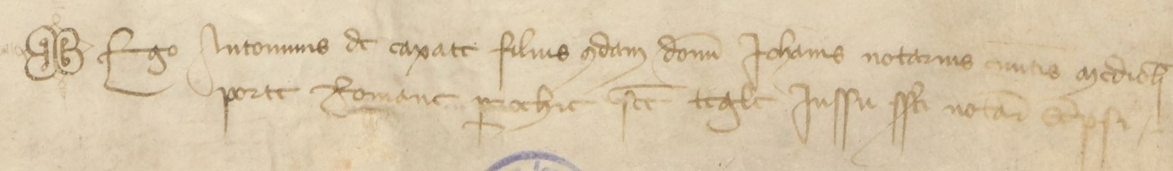 Ego Antonius de caxate filius qdam domi Johanis notarius civitis Medioli
porte Romane parochie sce tegle Jussu ssti notarii scripsi